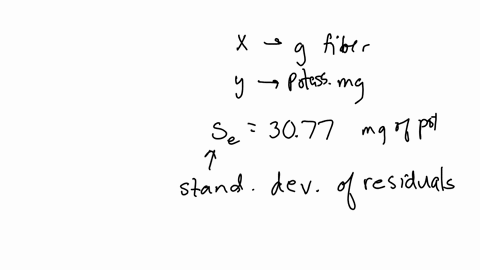 x → g fiber
y → Potass. mg
Se = 30.77 mg of pot
↑
stand. dev. of residuals